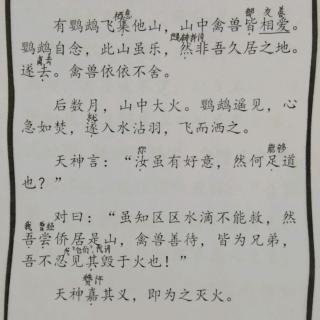 栖息
都 友善
有鹦鹉飞集他山，山中禽兽皆相爱。
鹦鹉自念，此山虽乐，然非吾久居之地。
离去
遂去。禽兽依依不舍。
后数月，山中大火。鹦鹉遥见，心
急如焚，遂入水沾羽，飞而洒之。
你
能够
天神言：“汝虽有好意，然何足道
也？”
我 曾经
对曰：“虽知区区水滴不能救，然
吾尝侨居是山，禽兽善待，皆为兄弟，
吾不忍见其毁于火也！”
天神嘉其义，即为之灭火。